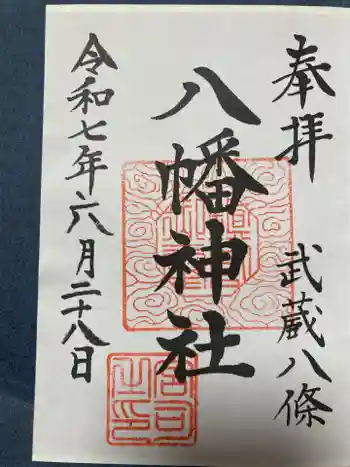 奉拝
武蔵八條
八幡神社
令和七年六月二十八日
宮司之印